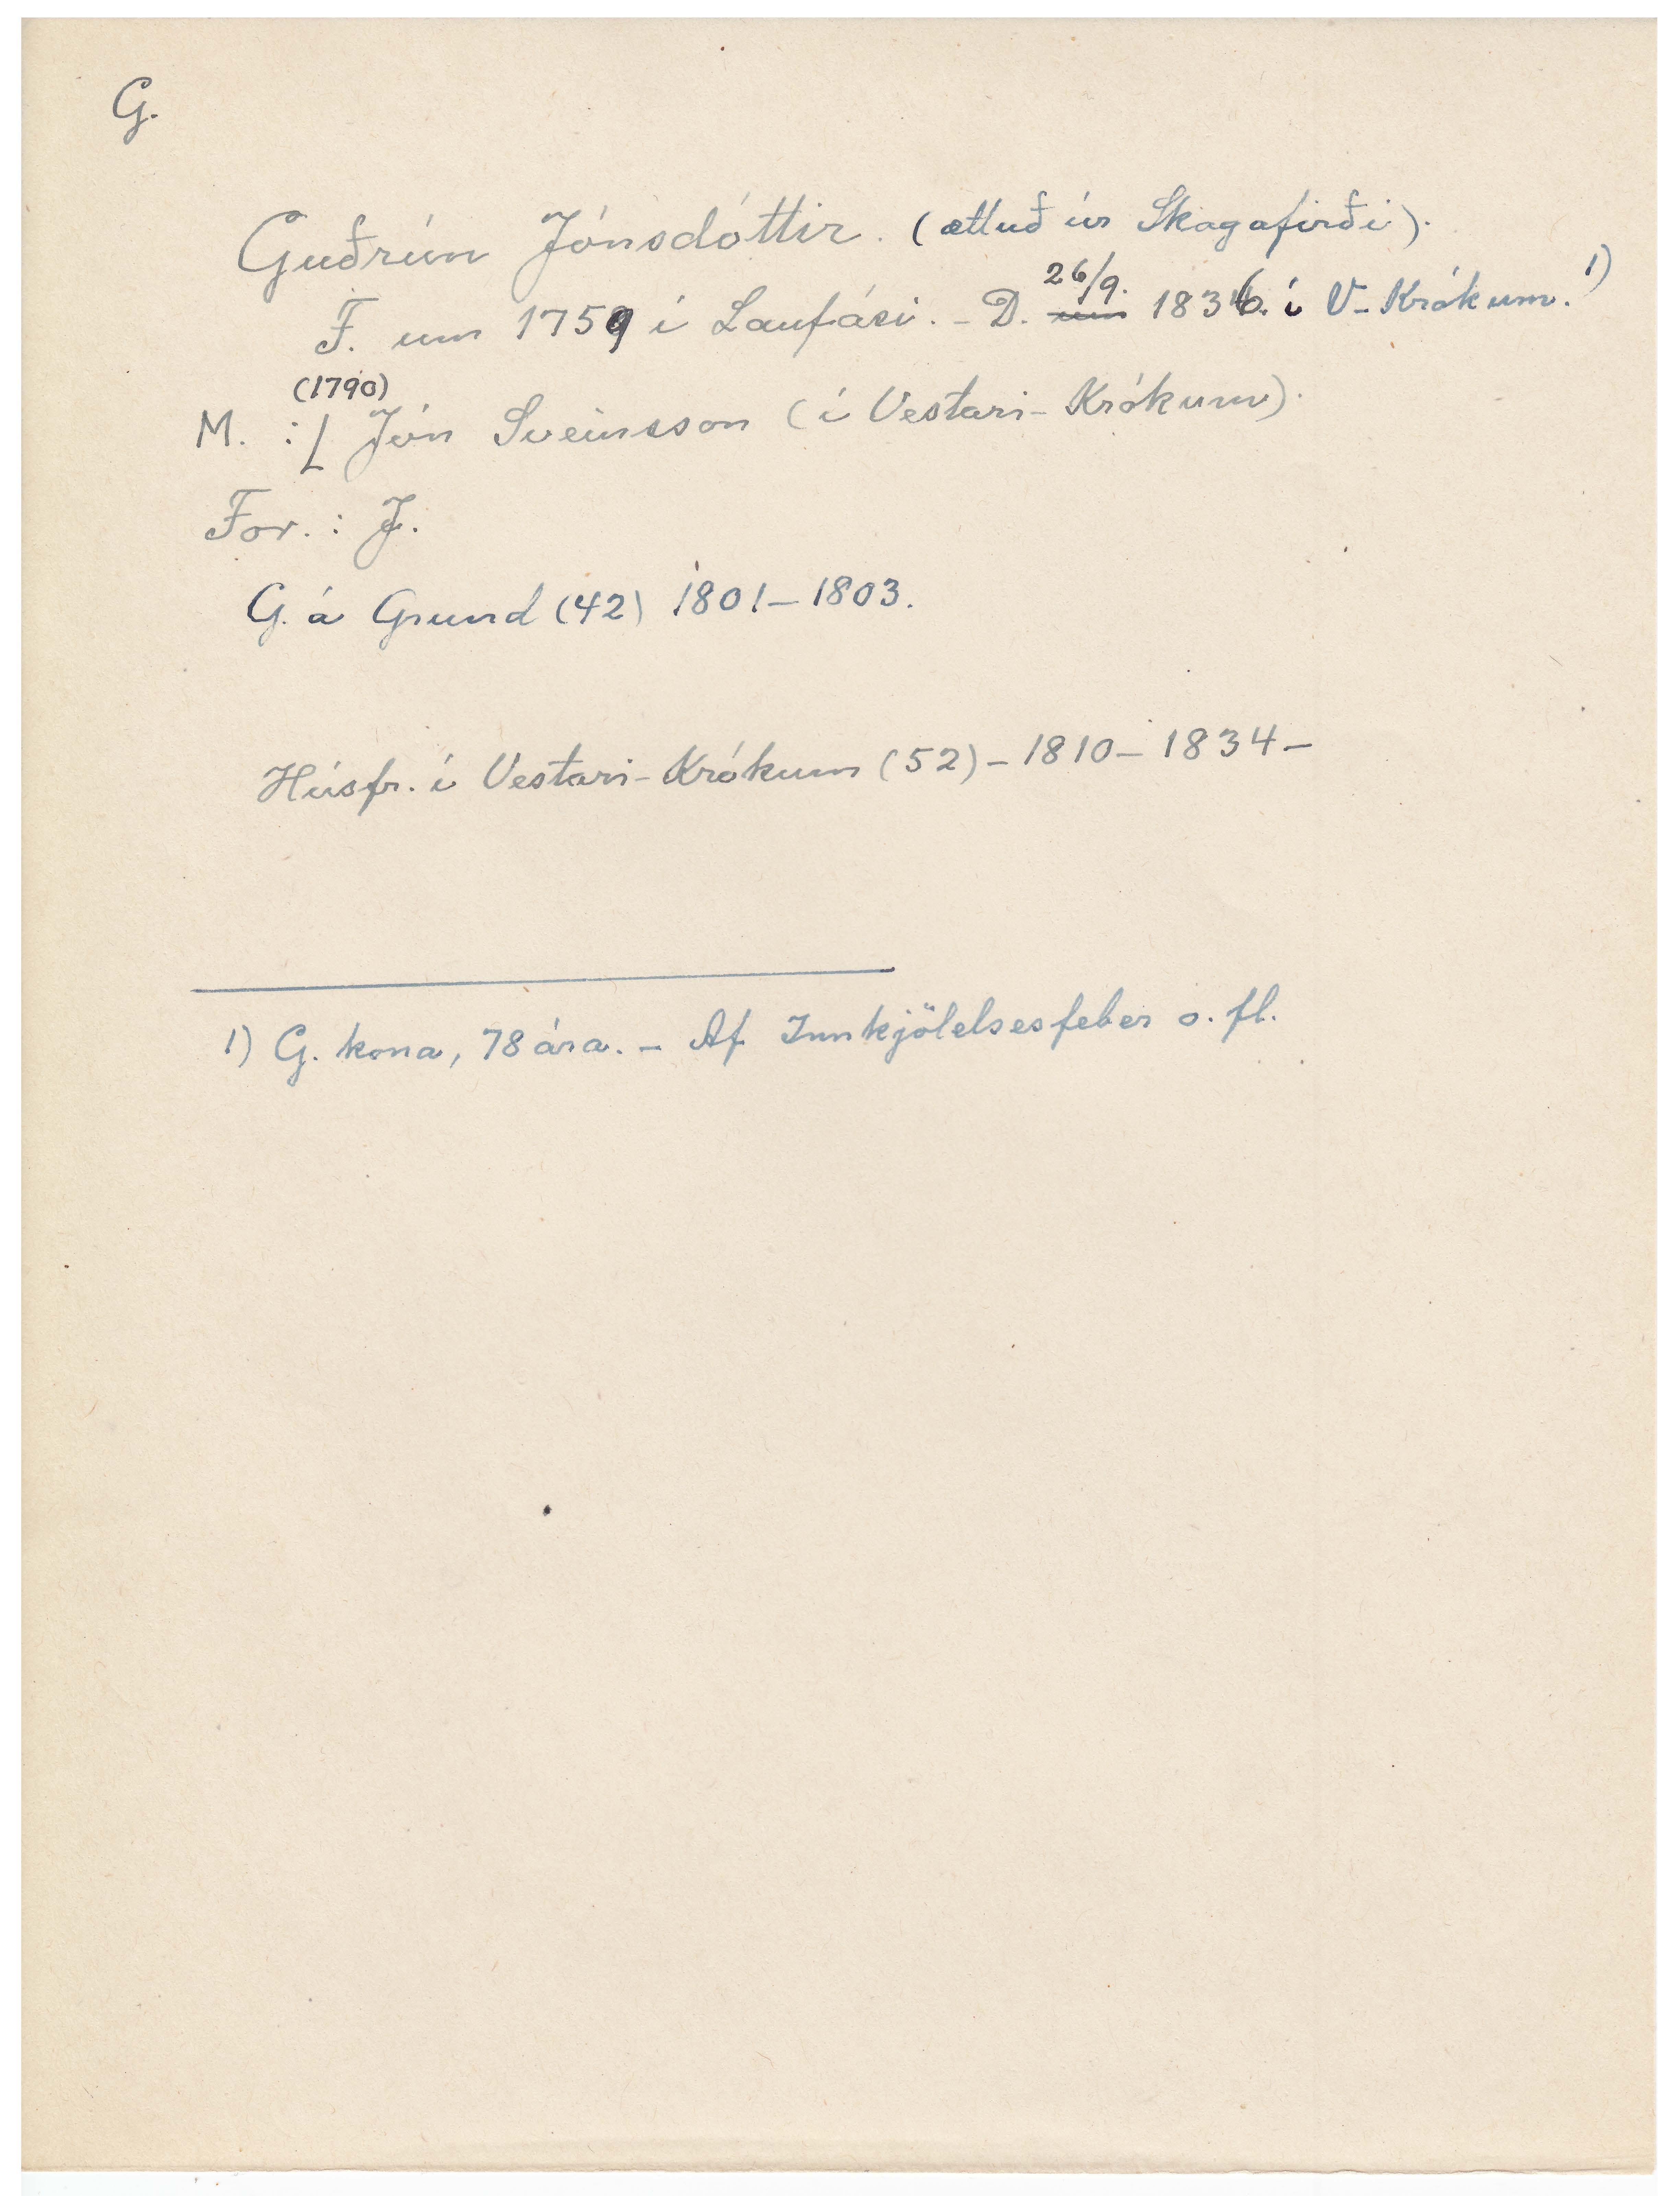 G.
Guðrún Jónsdóttir. (ætluð úr Skagafirði).
F. um 1759 í Laufási. - D. ~~um~~ 26/9. 1836. í V-Krókum. 1)
(1790)
M. : Jón Sveinsson (í Vestari-Krókum).
For. : J.
G. á Grund (42) 1801-1803.
Húsfr. í Vestari-Krókum (52) - 1810 - 1834 -
1) G. kona, 78 ára. - Af Innkjölelsesfeber o. fl.